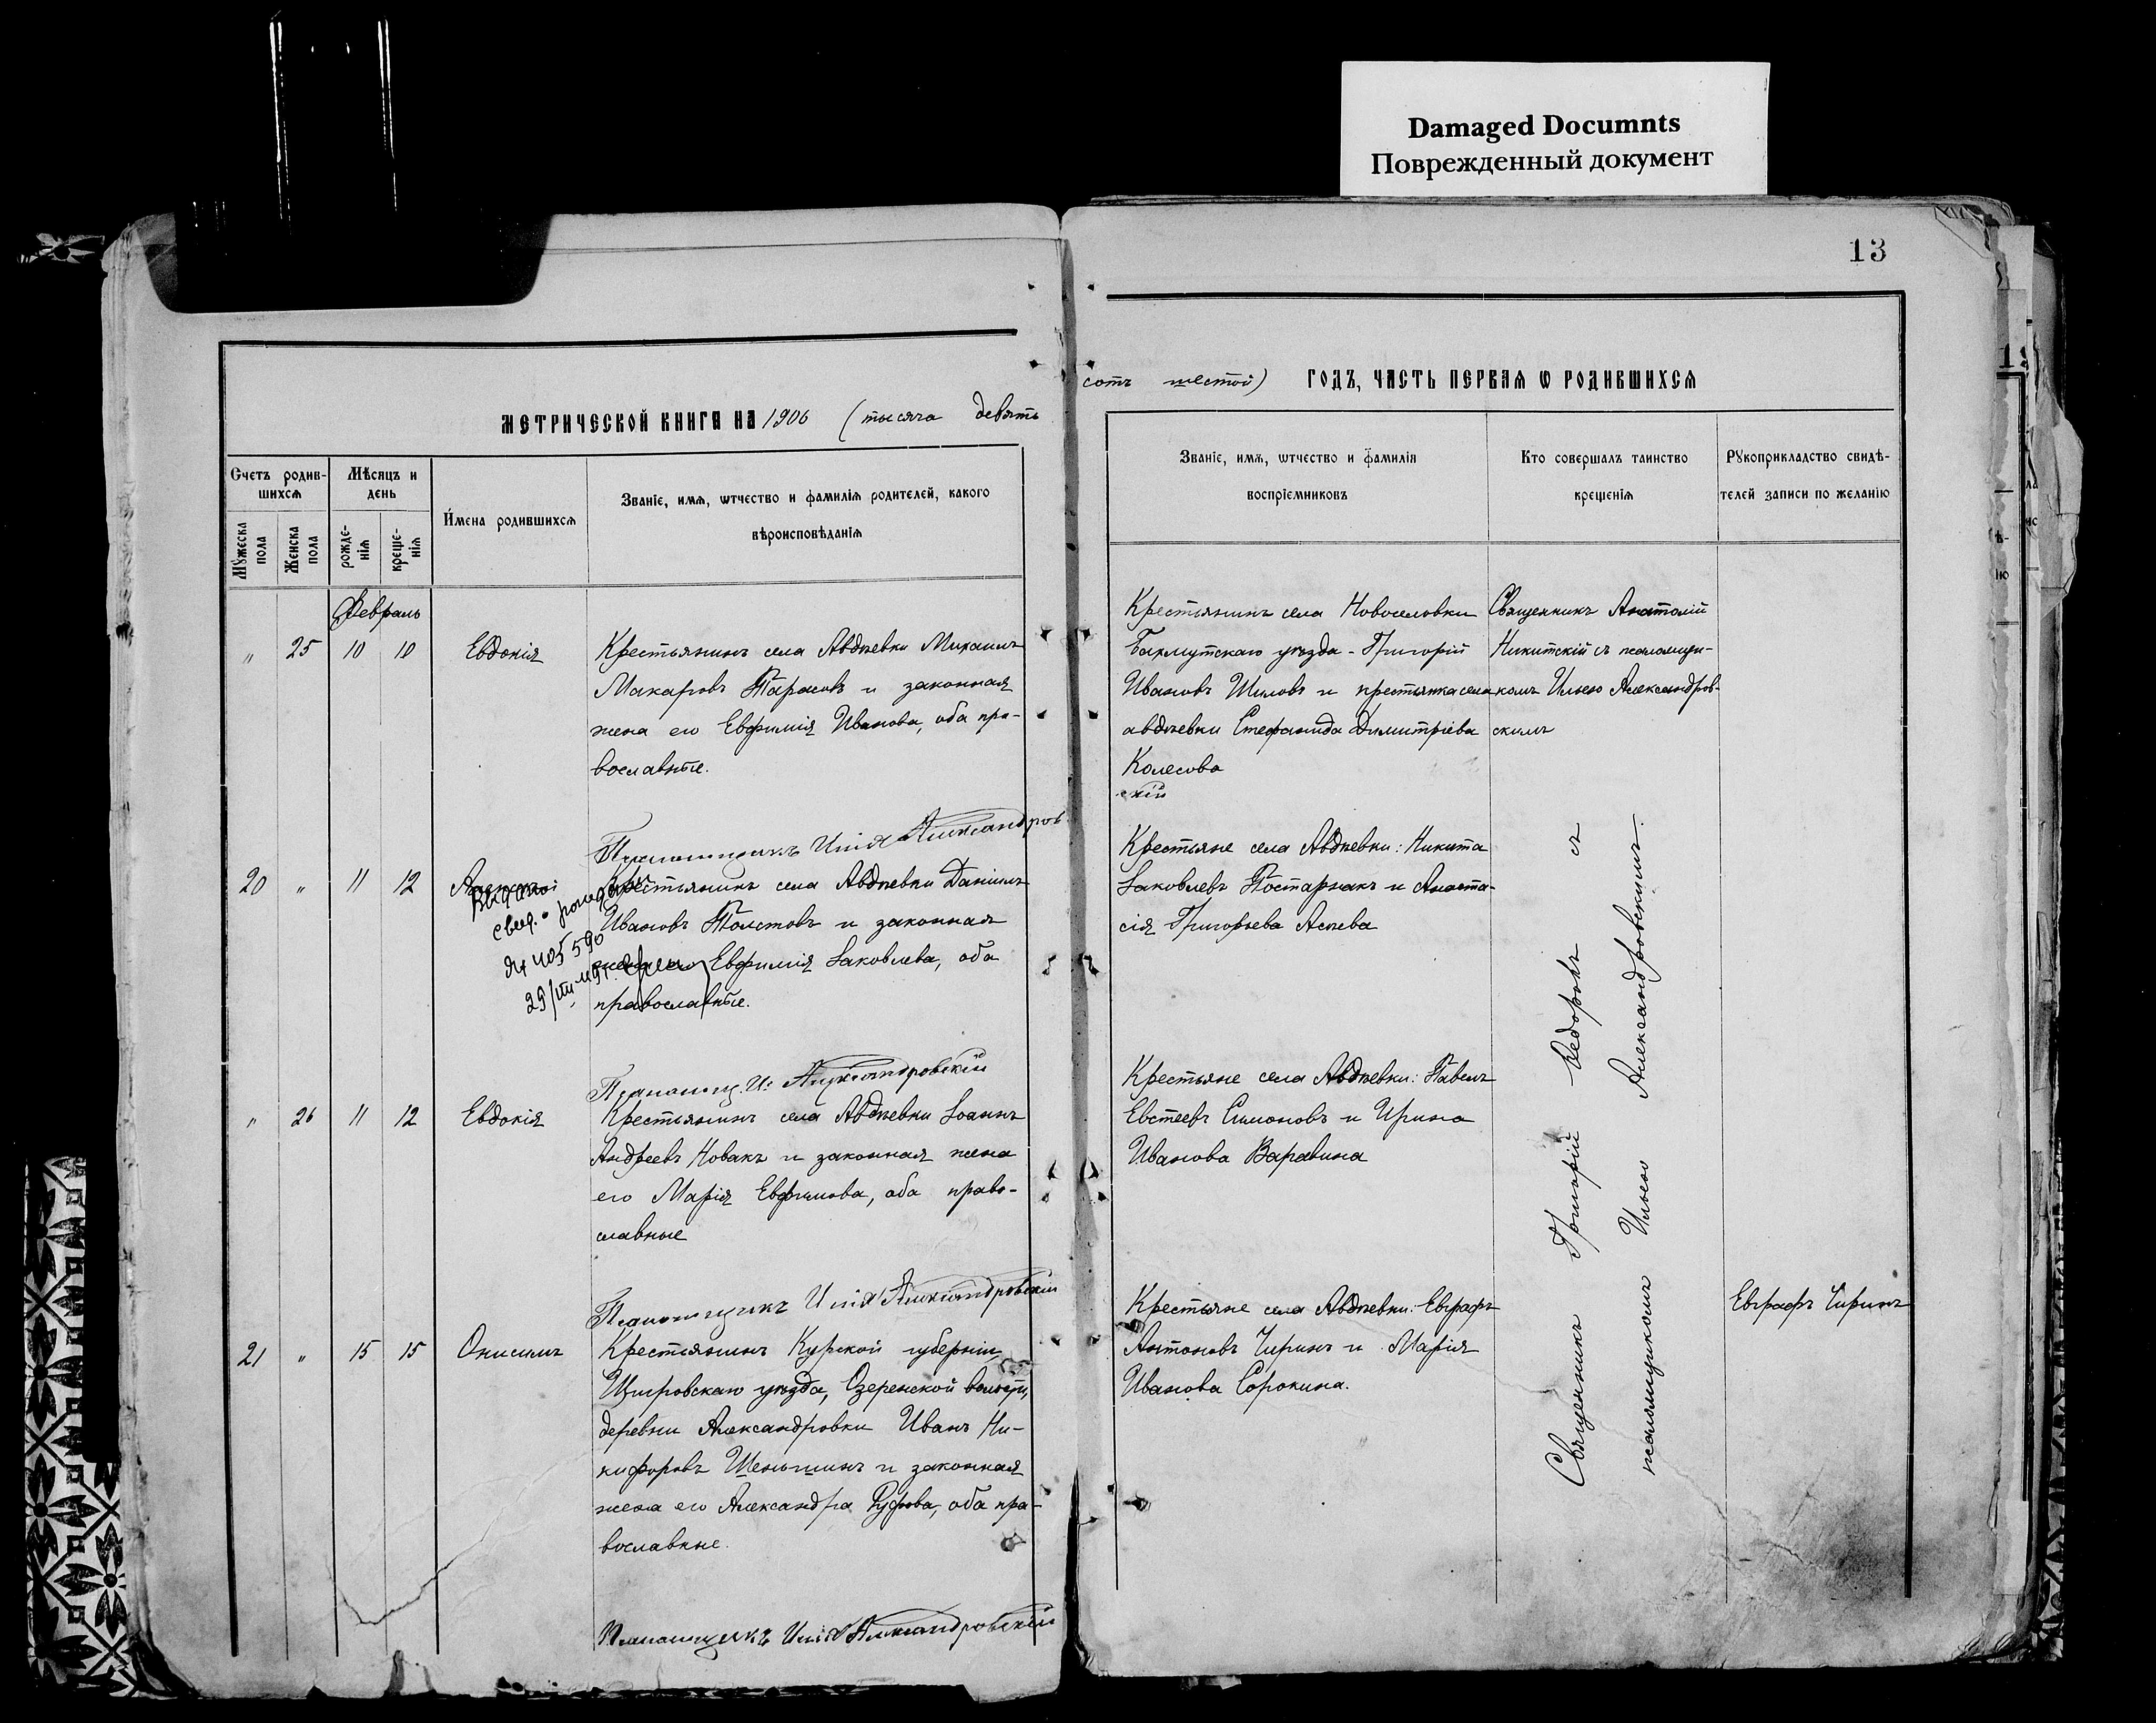 Damaged Documnts
Поврежденный документ
13
МЕТРИЧЕСКОЙ КНИГИ НА 1906 (тысяча девять
сотъ шестой) ГОДЪ, ЧАСТЬ ПЕРВАЯ Ѡ РОДИВШИХСЯ
Счетъ родив-
шихся
Мѣсяцъ и
день
Мужеска
пола
Женска
пола
рожде-
нія
креще-
нія
Имена родившихся
Званіе, имя, ѡтчество и фамилія родителей, какого
вѣроисповѣданія
Званіе, имя, ѡтчество и фамилія
воспріемниковъ
Кто совершалъ таинство
крещенія
Рукоприкладство свидѣ-
телей записи по желанію
Февраль
" 25 10 10 Евдокія
Крестьянинъ села Авдѣевки Михаилъ
Макаровъ Тарасовъ и законная
жена его Евфимія Иванова, оба пра-
вославные.
Крестьянинъ села Новоселовки
Бахмутскаго уѣзда - Григорій
Ивановъ Шиловъ и крестьянка села
авдѣевки Стефанида Димитріева
Колесова
Священникъ Анатолій
Никитскій съ псаломщи-
комъ Ильею Александров-
скимъ
скій
Псаломщикъ Илія Александров
20 " 11 12 Алексій
Выдано
свид. о рождении
405590
Крестьянинъ села Авдѣевки Даніилъ
Ивановъ Толстовъ и законная
жена его Евфимія Іаковлева, оба
православные.
Крестьяне села Авдѣевки: Никита
Іаковлевъ Постарнакъ и Анаста-
сія Григорьева Асѣева
Псаломщ. И. Александровскій
" 26 11 12 Евдокія
Крестьянинъ села Авдѣевки Іоаннъ
Андреевъ Новакъ и законная жена
его Марія Евфимова, оба право-
славные
Крестьяне села Авдѣевки: Павелъ
Евстеевъ Симоновъ и Ирина
Иванова Варавина
Псаломщикъ Илія Александровскій
21 " 15 15 Онисимъ
Крестьянинъ Курской губерніи,
Щигровскаго уѣзда, Озеренской волости,
деревни Александровки Иванъ Ни-
кифоровъ Шеньшинъ и законная
жена его Александра Руфова, оба пра-
вославные.
Крестьяне села Авдѣевки: Евграфъ
Антоновъ Чиринъ и Марія
Иванова Сорокина.
Евграфъ Чиринъ
Священникъ Григорій Ѳедоровъ съ
псаломщикомъ Ильею Александровскимъ.
Псаломщикъ Илія Александровскій